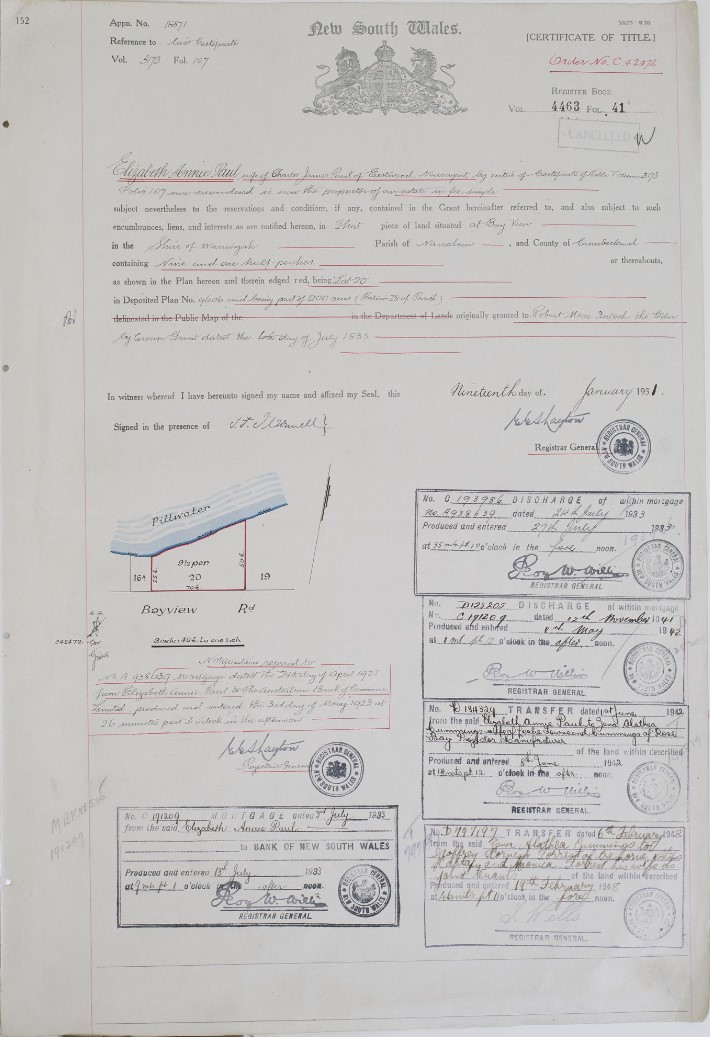 152
Appn. No. 15571
Reference to Last Certificate
Vol. 3173 Fol. 107
New South Wales.
[CERTIFICATE OF TITLE.]
Order No. C 42472
REGISTER BOOK
VOL. 4463 FOL. 41
CANCELLED
Elizabeth Annie Paul wife of Charles James Paul of Eastwood by virtue of Certificate of Title Volume 3173
Folio 107 now surrendered is now the proprietor of an Estate in fee simple
subject nevertheless to the reservations and conditions, if any, contained in the Grant hereinafter referred to, and also subject to such
encumbrances, liens, and interests as are notified hereon, in That piece of land situated at Bay View
in the Shire of Warringah Parish of Narrabeen, and County of Cumberland
containing Nine and one half perches or thereabouts,
as shown in the Plan hereon and therein edged red, being Lot 20
in Deposited Plan No. and being part of acres (Portion of Parish)
delineated in the Public Map of the in the Department of Lands originally granted to Robert the Elder
by Crown Grant dated the day of July 1833
In witness whereof I have hereunto signed my name and affixed my Seal, this Nineteenth day of January 1931.
Signed in the presence of
Registrar General
REGISTRAR GENERAL NEW SOUTH WALES
Pittwater
16A
9½ per.
20
19
Bayview Rd
C42472
Scale: 40 feet to one inch
Notification referred to
No. A 938639 Mortgage dated the day of April 1923
from Elizabeth Annie Paul to The Australian Bank of Commerce
Limited produced and entered the day of May 1923 at
26 minutes past o'clock in the afternoon
Registrar General
No. C 191209 MORTGAGE dated 3rd July 1933
from the said Elizabeth Annie Paul
to BANK OF NEW SOUTH WALES
Produced and entered 13th July 1933
at 9 mts pt 1 o'clock in the after noon.
Roy W. Wills
REGISTRAR GENERAL.
No. C 193986 DISCHARGE of within mortgage
No. A938639 dated 24th July 1933
Produced and entered 27th July 1933
at 55 mts pt 10 o'clock in the fore noon.
Roy W. Wills
REGISTRAR GENERAL
No. D123205 DISCHARGE of within mortgage
No. C 191209 dated 12th November 1941
Produced and entered 8th May 1942
at 1 mt pt 2 o'clock in the after noon.
Roy W. Wills
REGISTRAR GENERAL
No. D 134324 TRANSFER dated 1st June 1942
from the said Elizabeth Annie Paul to Zena Alathea
Cummings wife of Leslie Townsend Cummings of Rose
Bay Manufacturer
of the land within described
Produced and entered 8th June 1942
at 18 mts pt 12 o'clock in the after noon
Roy W. Wills
REGISTRAR GENERAL.
No. D797197 TRANSFER dated 6th February 1948
from the said Zena Alathea Cummings to
Geoffrey of Cremorne
and Monica his wife as
joint tenants of the land within described
Produced and entered 19th February 1948
at o'clock in the fore noon
Wills
REGISTRAR GENERAL.
191209